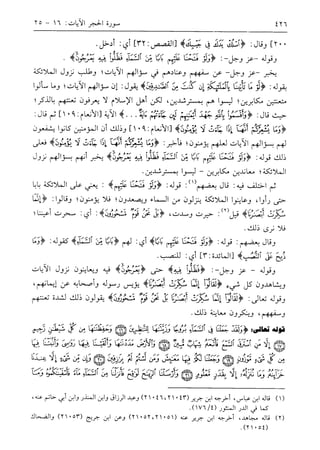 ٤٢٦ سورة الحجر الآيات: ١٦ - ٢٥
٢٠٠] وقال: ﴿ٱسْلُكْ يَدَكَ فِي جَيْبِكَ﴾ [القصص: ٣٢] أي: أدخل.
وقوله -عز وجل-: ﴿وَلَوْ فَتَحْنَا عَلَيْهِم بَابًا مِّنَ ٱلسَّمَآءِ فَظَلُّوا۟ فِيهِ يَعْرُجُونَ﴾.
يخبر -عز وجل- عن سفههم وعنادهم في سؤالهم الآيات؛ وطلب نزول الملائكة
بقوله: ﴿لَّوْ مَا تَأْتِينَا بِٱلْمَلَٰٓئِكَةِ إِن كُنتَ مِنَ ٱلصَّٰدِقِينَ﴾ يقول: إن سؤالهم الآيات؛ وما سألوا
متعنتين مكابرين؛ ليسوا هم بمسترشدين، لكن أهل الإسلام لا يعرفون تعنتهم بالذكر؛
حيث قال: ﴿وَأَقْسَمُوا۟ بِٱللَّهِ جَهْدَ أَيْمَٰنِهِمْ ...﴾ الآية [الأنعام: ١٠٩] ثم قال:
﴿وَمَا يُشْعِرُكُمْ أَنَّهَآ إِذَا جَآءَتْ لَا يُؤْمِنُونَ﴾ [الأنعام: ١٠٩] وذلك أن المؤمنين كانوا يشفعون
لهم بسؤالهم الآيات لعلهم يؤمنون؛ فأخبر: ﴿وَمَا يُشْعِرُكُمْ أَنَّهَآ إِذَا جَآءَتْ لَا يُؤْمِنُونَ﴾ فعلى
ذلك قوله: ﴿وَلَوْ فَتَحْنَا عَلَيْهِم بَابًا مِّنَ ٱلسَّمَآءِ فَظَلُّوا۟ فِيهِ يَعْرُجُونَ﴾ يخبر أنهم بسؤالهم نزول
الملائكة؛ معاندين مكابرين - ليسوا بمسترشدين.
ثم اختلف فيه: قال بعضهم(١): قوله: ﴿وَلَوْ فَتَحْنَا عَلَيْهِم﴾: يعني على الملائكة بابا
حتى رأوا، وعاينوا الملائكة ينزلون من السماء ويصعدون؛ فلا يؤمنون؛ وقالوا: ﴿إِنَّمَا
سُكِّرَتْ أَبْصَٰرُنَا﴾ قيل(٢): حيرت وسدت، ﴿بَلْ نَحْنُ قَوْمٌ مَّسْحُورُونَ﴾: أي: سحرت أعيننا؛
فلا نرى ذلك.
وقال بعضهم: قوله: ﴿وَلَوْ فَتَحْنَا عَلَيْهِم بَابًا مِّنَ ٱلسَّمَآءِ﴾ أي: لهم ﴿بَابًا مِّنَ ٱلسَّمَآءِ﴾ كقوله: ﴿وَمَا
ذُبِحَ عَلَى ٱلنُّصُبِ﴾ [المائدة: ٣] أي: للنصب.
وقوله -عز وجل-: ﴿فَظَلُّوا۟ فِيهِ يَعْرُجُونَ﴾ حتى ﴿يَعْرُجُونَ﴾ فيه ويعاينون نزول الآيات
ويشاهدون كل شيء ﴿لَقَالُوٓا۟ إِنَّمَا سُكِّرَتْ أَبْصَٰرُنَا﴾ يؤيس رسوله وأصحابه عن إيمانهم،
وقوله تعالى: ﴿لَقَالُوٓا۟ إِنَّمَا سُكِّرَتْ أَبْصَٰرُنَا بَلْ نَحْنُ قَوْمٌ مَّسْحُورُونَ﴾ يقولون ذلك لشدة تعنتهم
وسفههم، وينكرون معاينة ذلك.
قوله تعالى: ﴿وَلَقَدْ جَعَلْنَا فِي ٱلسَّمَآءِ بُرُوجًا وَزَيَّنَّٰهَا لِلنَّٰظِرِينَ ۝ وَحَفِظْنَٰهَا مِن كُلِّ شَيْطَٰنٍ رَّجِيمٍ
۝ إِلَّا مَنِ ٱسْتَرَقَ ٱلسَّمْعَ فَأَتْبَعَهُۥ شِهَابٌ مُّبِينٌ ۝ وَٱلْأَرْضَ مَدَدْنَٰهَا وَأَلْقَيْنَا فِيهَا رَوَٰسِيَ وَأَنۢبَتْنَا فِيهَا مِن
كُلِّ شَيْءٍ مَّوْزُونٍ ۝ وَجَعَلْنَا لَكُمْ فِيهَا مَعَٰيِشَ وَمَن لَّسْتُمْ لَهُۥ بِرَٰزِقِينَ ۝ وَإِن مِّن شَيْءٍ إِلَّا عِندَنَا
خَزَآئِنُهُۥ وَمَا نُنَزِّلُهُۥٓ إِلَّا بِقَدَرٍ مَّعْلُومٍ ۝ وَأَرْسَلْنَا ٱلرِّيَٰحَ لَوَٰقِحَ فَأَنزَلْنَا مِنَ ٱلسَّمَآءِ مَآءً فَأَسْقَيْنَٰكُمُوهُ
(١) قاله ابن عباس، أخرجه ابن جرير (٢١٠٤٣، ٢١٠٤٦) وعبد الرزاق وابن المنذر وابن أبي حاتم عنه،
كما في الدر المنثور (٤/ ١٧٦).
(٢) قاله مجاهد، أخرجه ابن جرير عنه (٢١٠٥١، ٢١٠٥٢) وعن ابن جريج (٢١٠٥٣) والضحاك
(٢١٠٥٤).